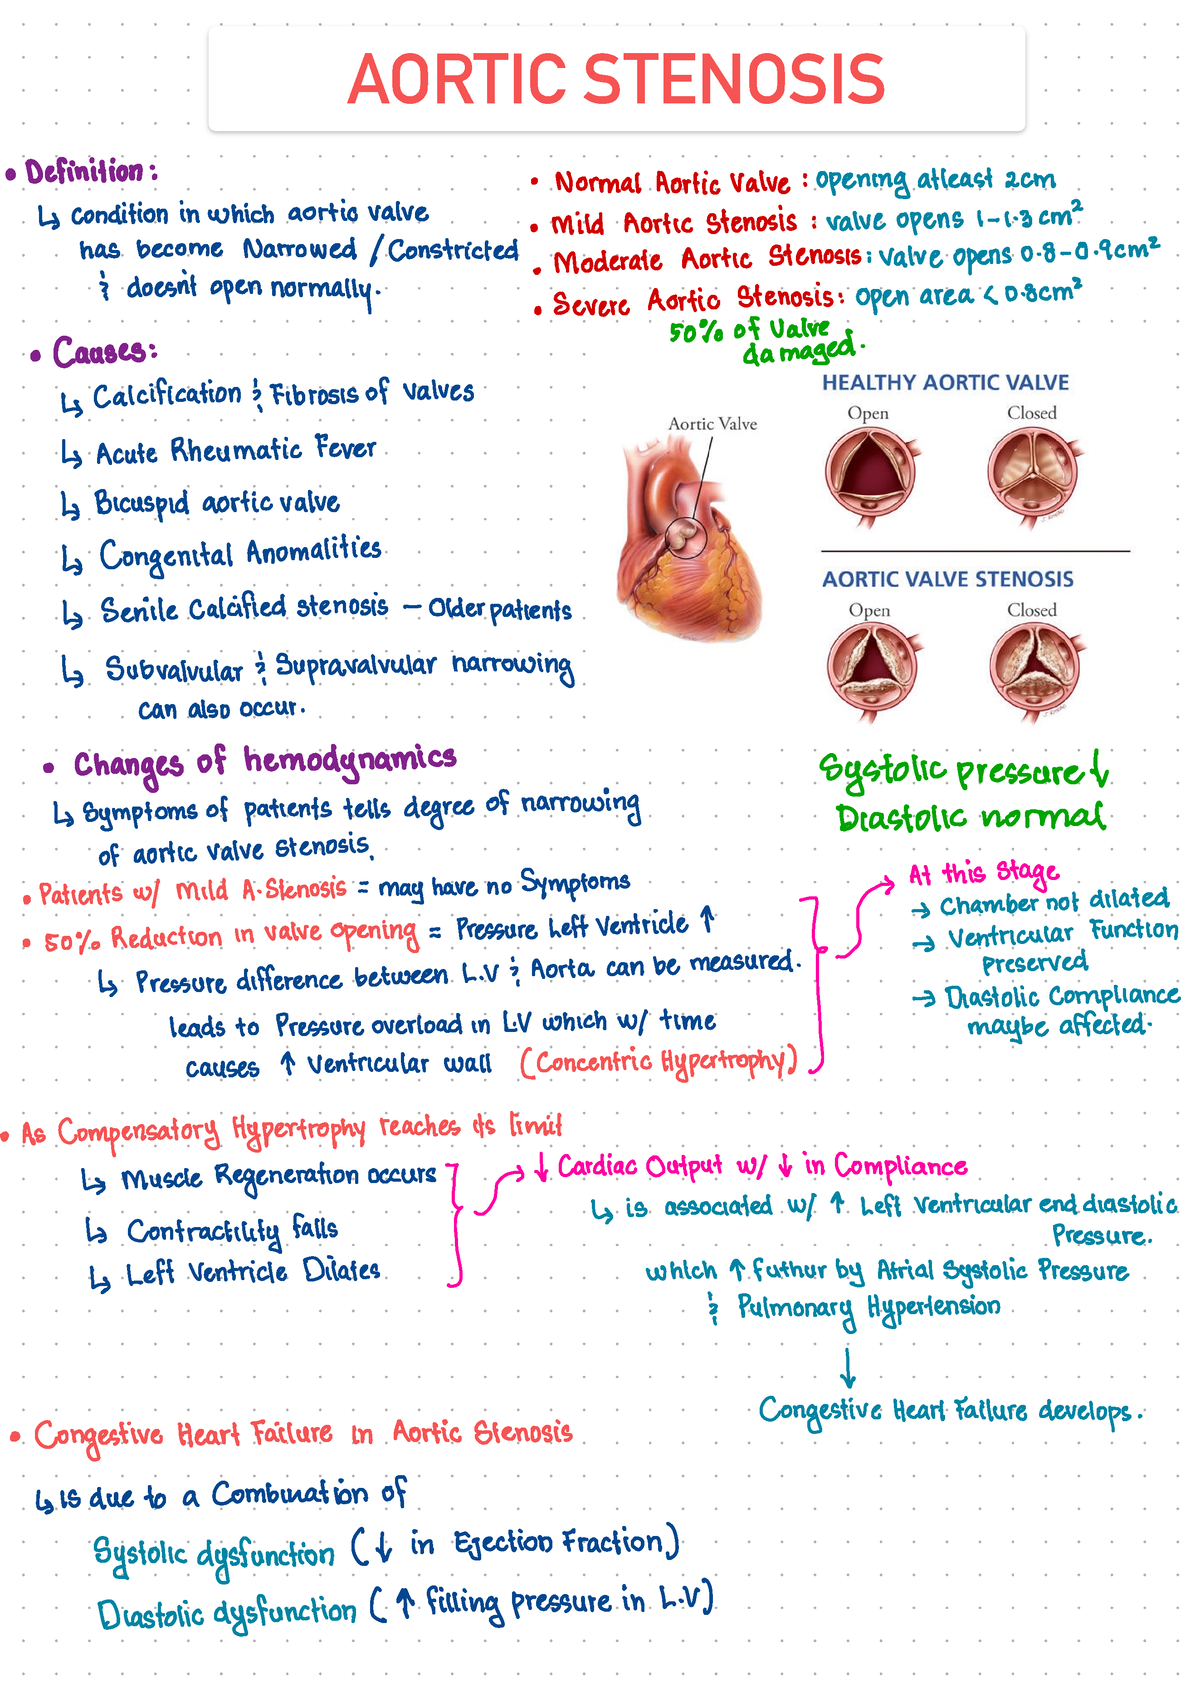 AORTIC STENOSIS
• Definition:
↳ Condition in which aortic valve
has become Narrowed / Constricted
& doesn't open normally.
• Normal Aortic Valve : opening atleast 2cm
• Mild Aortic Stenosis : valve opens 1-1.3 cm²
• Moderate Aortic Stenosis: valve opens 0.8-0.9cm²
• Severe Aortic Stenosis: open area < 0.8cm²
50% of valve
damaged.
• Causes:
↳ Calcification & Fibrosis of valves
↳ Acute Rheumatic Fever
↳ Bicuspid aortic valve
↳ Congenital Anomalities
↳ Senile Calcified stenosis – Older patients
↳ Subvalvular & Supravalvular narrowing
can also occur.
Aortic Valve
HEALTHY AORTIC VALVE
Open Closed
AORTIC VALVE STENOSIS
Open Closed
• Changes of hemodynamics
↳ Symptoms of patients tells degree of narrowing
of aortic valve stenosis.
Systolic pressure ↓
Diastolic normal
• Patients w/ Mild A.Stenosis = may have no Symptoms
• 50% Reduction in valve opening = Pressure Left Ventricle ↑
↳ Pressure difference between L.V & Aorta can be measured.
leads to Pressure overload in L.V which w/ time
causes ↑ Ventricular wall (Concentric Hypertrophy)
At this Stage
→ Chamber not dilated
→ Ventricular Function
preserved
→ Diastolic Compliance
maybe affected.
• As Compensatory Hypertrophy reaches its limit
↳ Muscle Regeneration occurs
↳ Contractility falls
↳ Left Ventricle Dilates
↓ Cardiac Output w/ ↓ in Compliance
↳ is associated w/ ↑ Left Ventricular end diastolic
Pressure.
which ↑ futhur by Atrial Systolic Pressure
& Pulmonary Hypertension
↓
Congestive Heart Failure develops.
• Congestive Heart Failure in Aortic Stenosis
↳ is due to a Combination of
Systolic dysfunction (↓ in Ejection Fraction)
Diastolic dysfunction (↑ filling pressure in L.V)